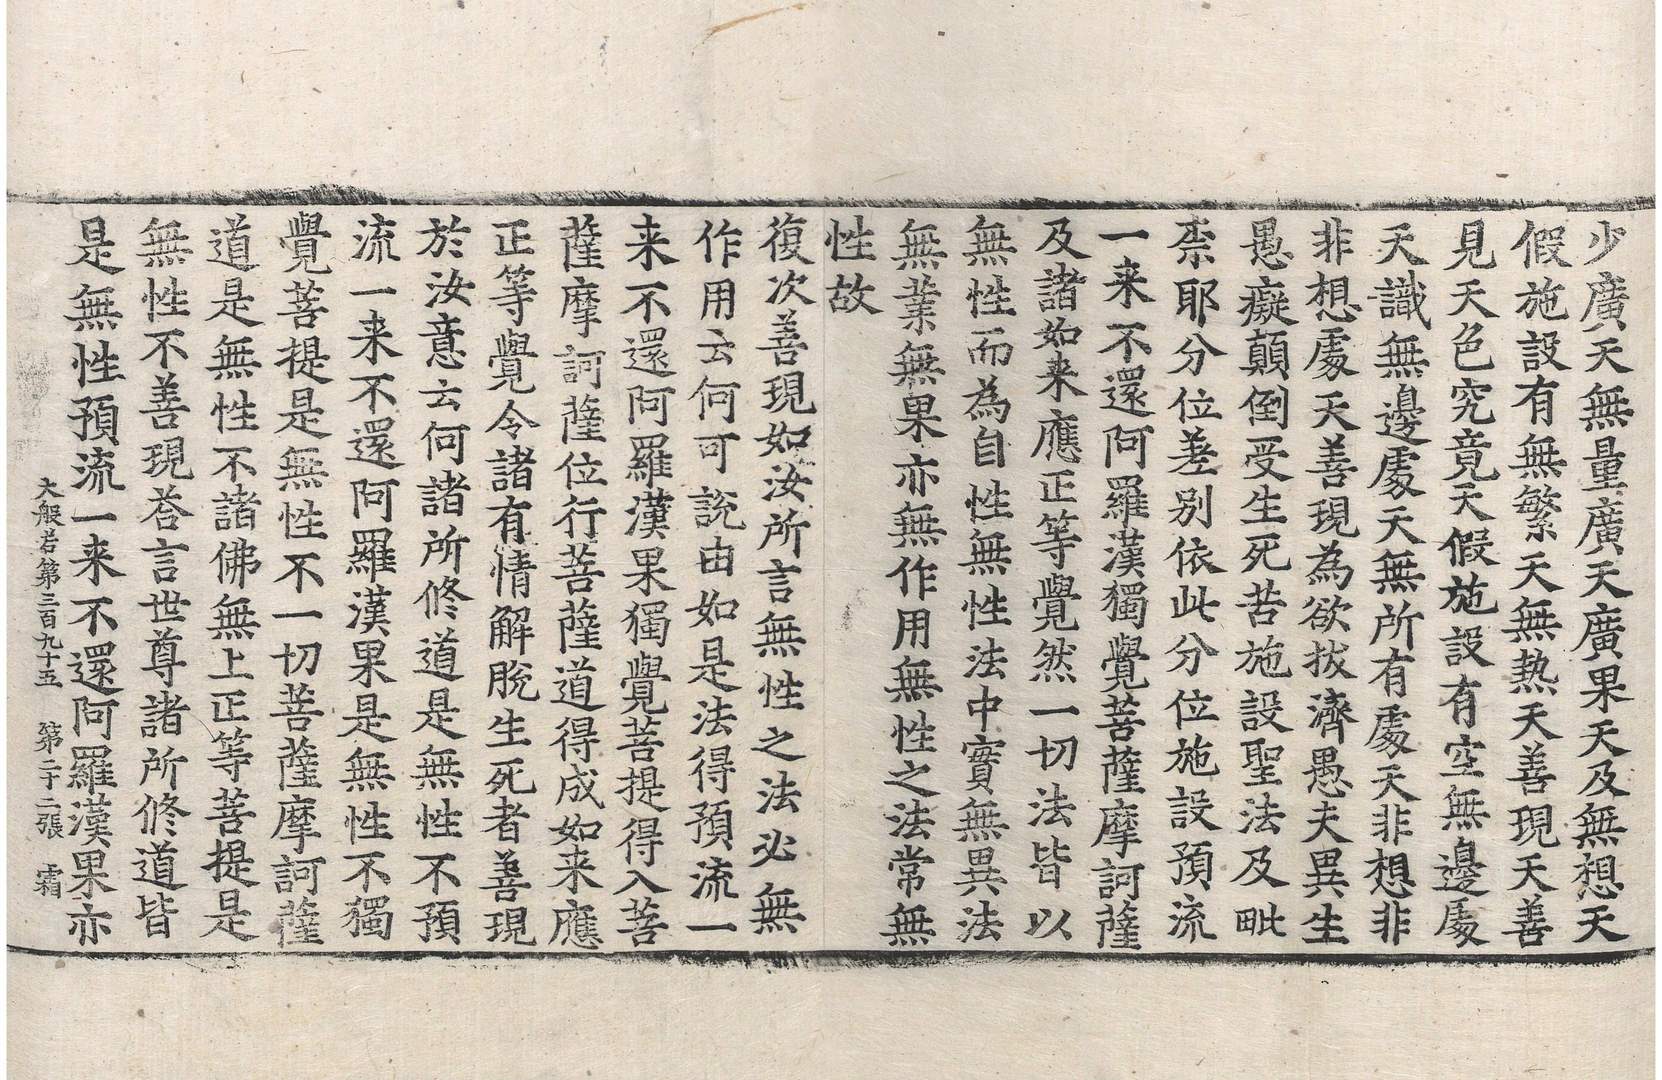 少廣天無量廣天廣果天及無想天
假施設有無繁天無熱天善現天善
見天色究竟天假施設有空無邊處
天識無邊處天無所有處天非想非
非想處天善現為欲拔濟愚夫異生
愚癡顛倒受生死苦施設聖法及毗
柰耶分位差別依此分位施設預流
一来不還阿羅漢獨覺菩薩摩訶薩
及諸如来應正等覺然一切法皆以
無性而為自性無性法中實無異法
無業無果亦無作用無性之法常無
性故
復次善現如汝所言無性之法必無
作用云何可說由如是法得預流一
来不還阿羅漢果獨覺菩提得入菩
薩摩訶薩位行菩薩道得成如来應
正等覺令諸有情解脫生死者善現
於汝意云何諸所修道是無性不預
流一来不還阿羅漢果是無性不獨
覺菩提是無性不一切菩薩摩訶薩
道是無性不諸佛無上正等菩提是
無性不善現荅言世尊諸所修道皆
是無性預流一来不還阿羅漢果亦
大般若第三百九十五 第二十二張 霜